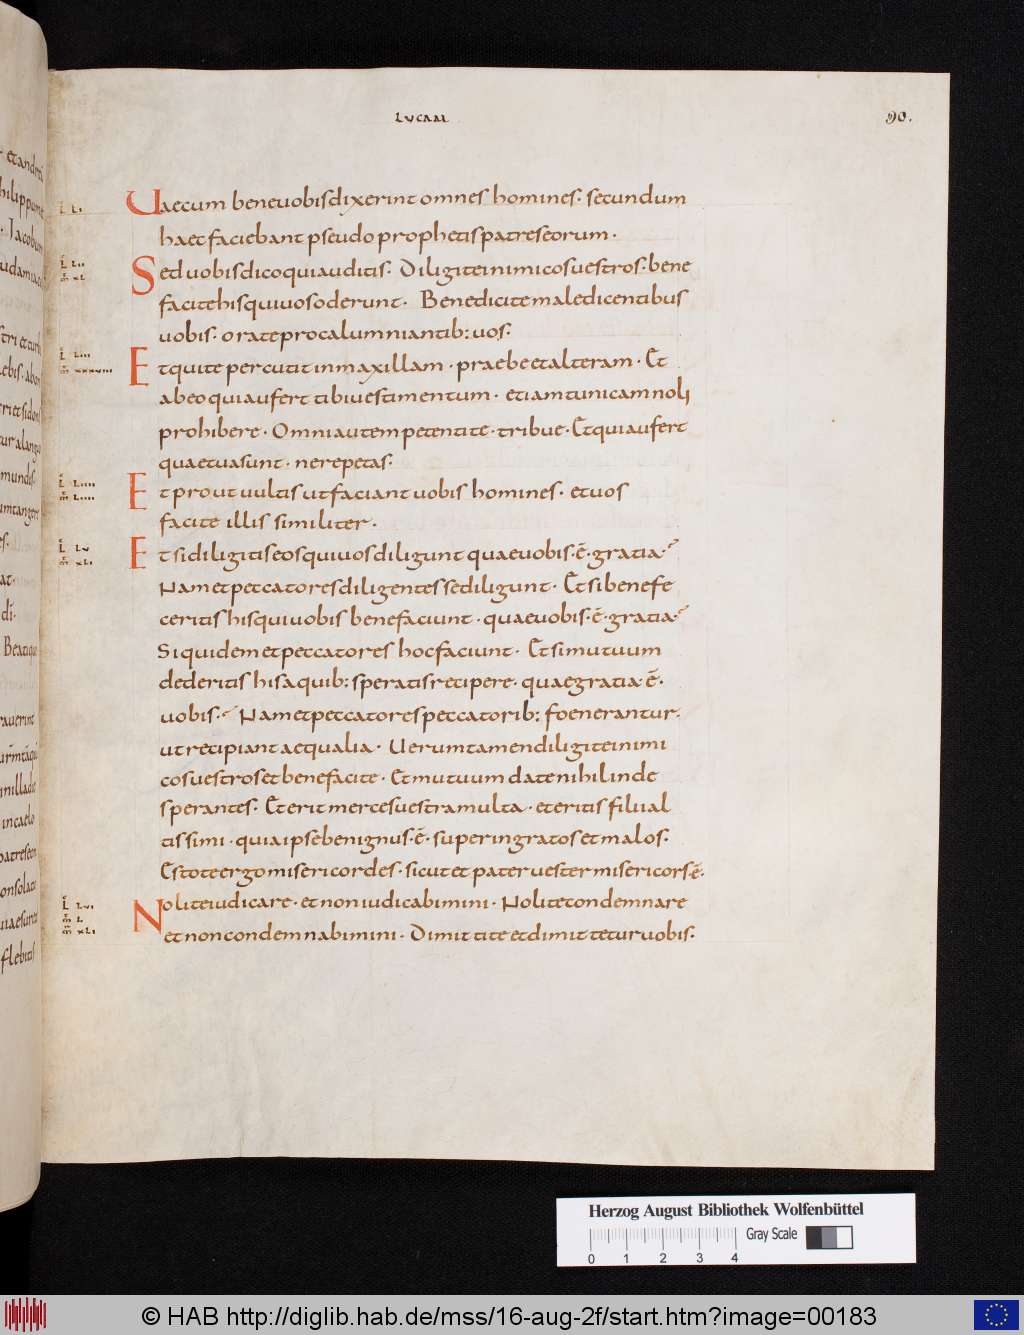 LUCAM
90.
Uae cum bene uobis dixerint omnes homines· secundum
haec faciebant pseudo prophetis patres eorum·
L LII
m XL
Sed uobis dico qui auditis· Diligite inimicos uestros· bene
facite his qui uos oderunt· Benedicite maledicentibus
uobis· orate pro calumniantib: uos·
L LIII
m XXXVIII
Et qui te percutit in maxillam· praebe et alteram· Et
ab eo qui aufert tibi uestimentum· etiam tunicam noli
prohibere· Omni autem petenti te· tribue· Et qui aufert
quae tua sunt· ne repetas·
L LIIII
m LIIII
Et prout uultis ut faciant uobis homines· et uos
facite illis similiter·
L LV
m XLI
Et si diligitis eos qui uos diligunt quae uobis· ē· gratia·
Nam et peccatores diligentes se diligunt· Et si benefe
ceritis his qui uobis benefaciunt· quae uobis· ē· gratia·
Siquidem et peccatores hoc faciunt· Et si mutuum
dederitis his a quib: speratis recipere· quae gratia ē·
uobis· Nam et peccatores peccatorib: foenerantur·
ut recipiant aequalia· Uerumtamen diligite inimi
cos uestros et benefacite· Et mutuum date nihil inde
sperantes· Et erit merces uestra multa· et eritis filii al
tissimi· quia ipse benignus· ē· super ingratos et malos·
Estote ergo misericordes· sicut et pater uester misericors· ē·
L LVI
m L
m XLI
Nolite iudicare· et non iudicabimini· Nolite condemnare
et non condemnabimini· Dimittite et dimittetur uobis·
Herzog August Bibliothek Wolfenbüttel
Gray Scale
0 1 2 3 4
© HAB http://diglib.hab.de/mss/16-aug-2f/start.htm?image=00183